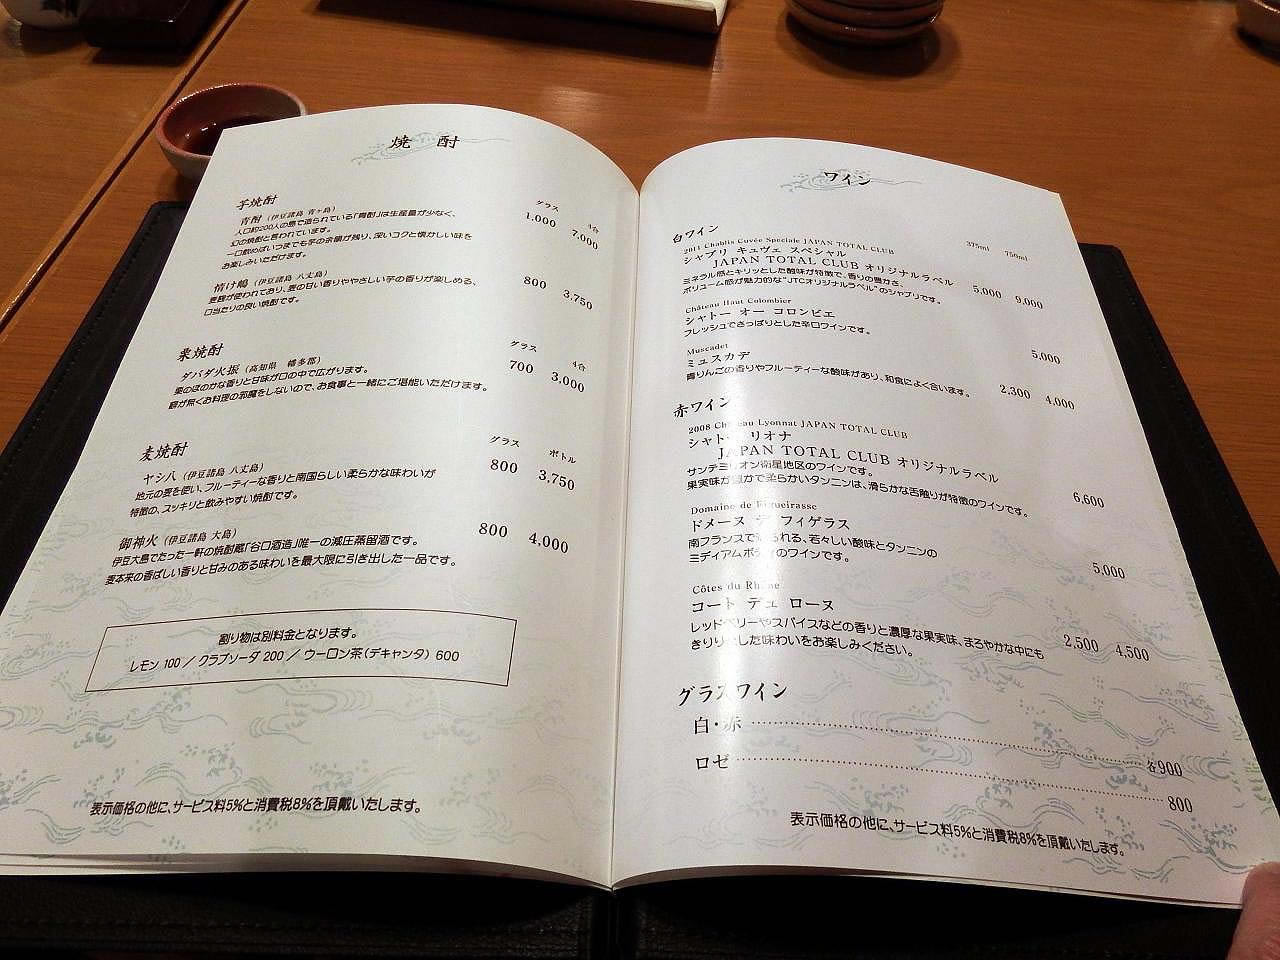 焼酎
芋焼酎
グラス 4合
青酎（伊豆諸島 青ヶ島） 1,000 7,000
人口約200人の島で造られている「青酎」は生産量が少なく、
幻の焼酎と言われています。
一口飲めばいつまでも芋の余韻が残り、深いコクと懐かしい味を
お楽しみいただけます。
情け嶋（伊豆諸島 八丈島） 800 3,750
麦麹が使われており、麦の甘い香りややさしい芋の香りが楽しめる、
口当たりの良い焼酎です。
栗焼酎
グラス 4合
ダバダ火振（高知県 幡多郡） 700 3,000
栗のほのかな香りと甘味が口の中で広がります。
癖が無くお料理の邪魔をしないので、お食事と一緒にご堪能いただけます。
麦焼酎
グラス ボトル
ヤシ八（伊豆諸島 八丈島） 800 3,750
地元の麦を使い、フルーティーな香りと南国らしい柔らかな味わいが
特徴の、スッキリと飲みやすい焼酎です。
御神火（伊豆諸島 大島） 800 4,000
伊豆大島でたった一軒の焼酎蔵「谷口酒造」唯一の減圧蒸留酒です。
麦本来の香ばしい香りと甘みのある味わいを最大限に引き出した一品です。
割り物は別料金となります。
レモン 100 ／ クラブソーダ 200 ／ ウーロン茶（デキャンタ） 600
表示価格の他に、サービス料5%と消費税8%を頂戴いたします。
ワイン
白ワイン
375ml 750ml
2011 Chablis Cuvée Speciale JAPAN TOTAL CLUB
シャブリ キュヴェ スペシャル
JAPAN TOTAL CLUB オリジナルラベル 5,000 9,000
ミネラル感とキリッとした酸味が特徴で、香りの豊かさ、
ボリューム感が魅力的な"JTCオリジナルラベル"のシャブリです。
Château Haut Colombier
シャトー オー コロンビエ
フレッシュでさっぱりとした辛口ワインです。 5,000
Muscadet
ミュスカデ
青りんごの香りやフルーティーな酸味があり、和食によく合います。 2,300 4,000
赤ワイン
2008 Château Lyonnat JAPAN TOTAL CLUB
シャトー リオナ
JAPAN TOTAL CLUB オリジナルラベル
サンテミリオン衛星地区のワインです。
果実味が豊かで柔らかいタンニンは、滑らかな舌触りが特徴のワインです。 6,600
Domaine de Figueirasse
ドメーヌ デ フィゲラス
南フランスで造られる、若々しい酸味とタンニンの
ミディアムボディのワインです。 5,000
Côtes du Rhône
コート デュ ローヌ
レッドベリーやスパイスなどの香りと濃厚な果実味、まろやかな中にも
きりりとした味わいをお楽しみください。 2,500 4,500
グラスワイン
白・赤 各900
ロゼ 800
表示価格の他に、サービス料5%と消費税8%を頂戴いたします。